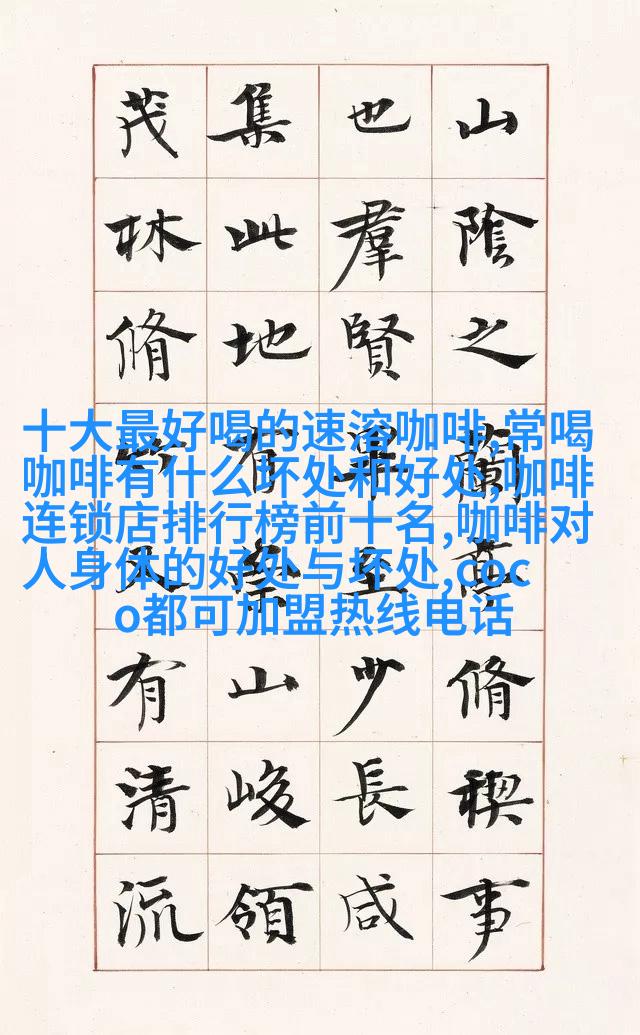 山陰之蘭亭脩稧事
也羣賢畢至少長咸
集此地有崇山峻領
茂林脩竹又有清流
十大最好喝的速溶咖啡,常喝
咖啡有什么坏处和好处,咖啡
连锁店排行榜前十名,咖啡对
人身体的好处与坏处,coc
o都可加盟热线电话